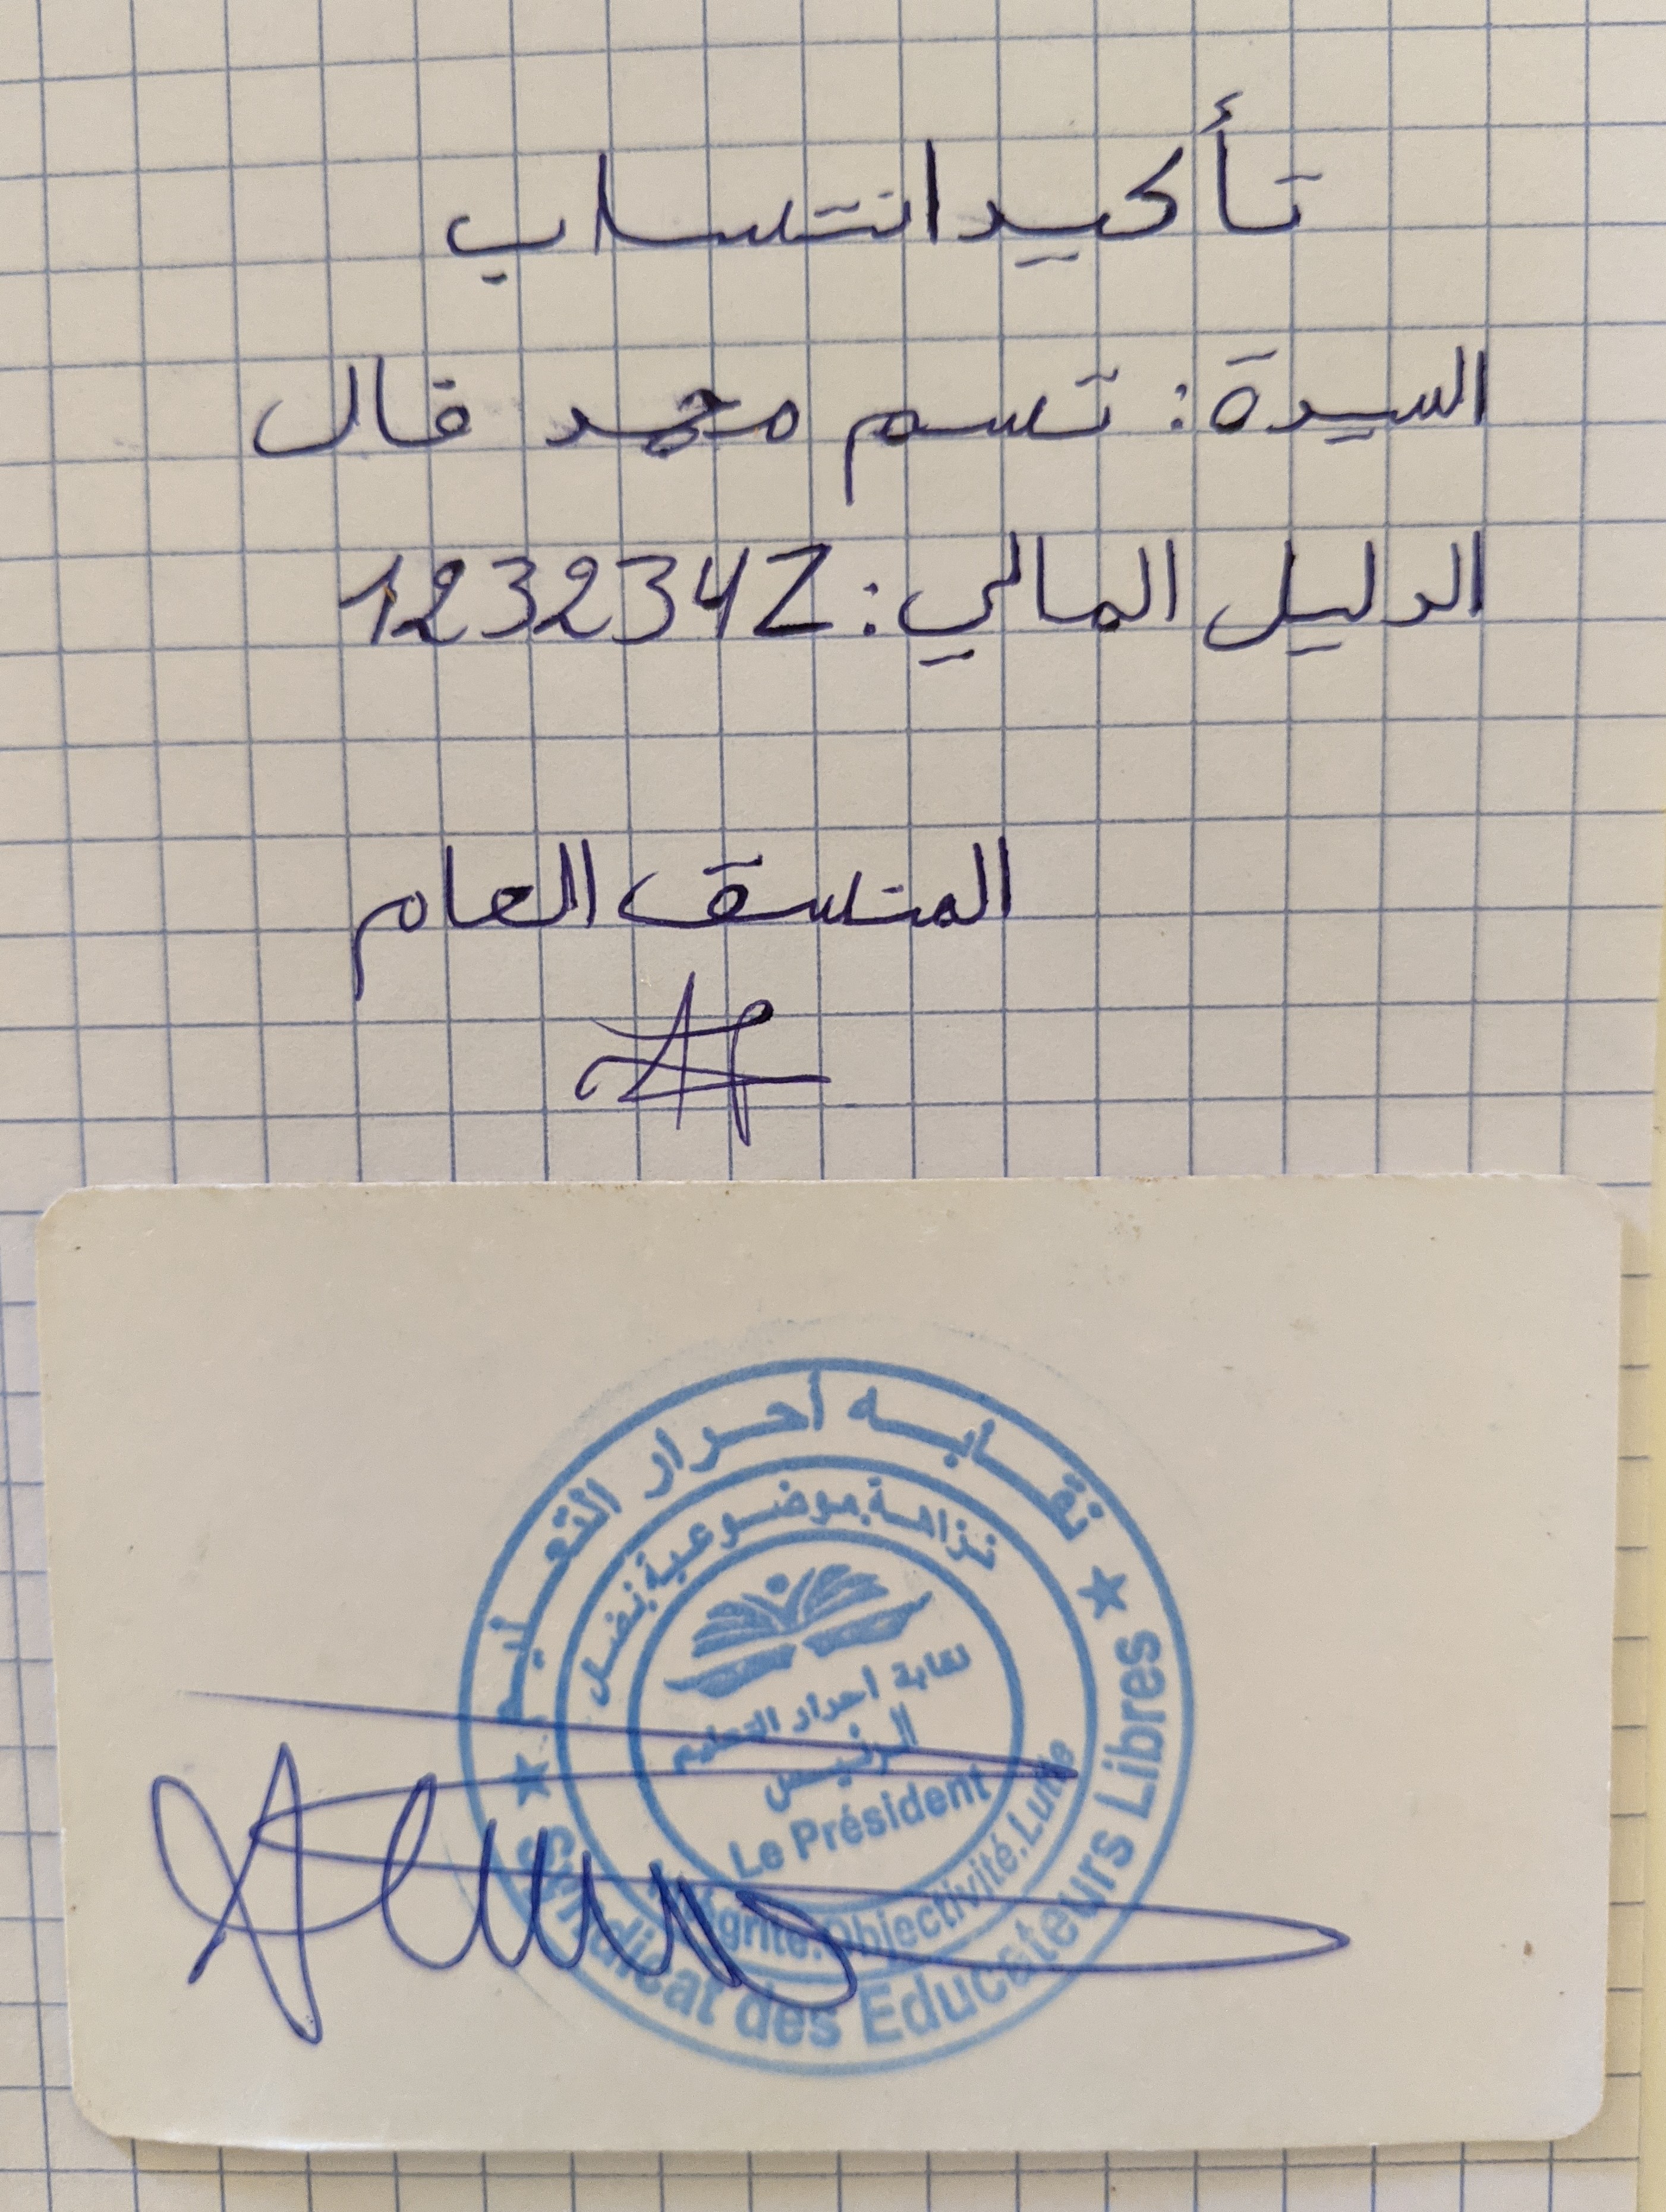 تأكيد انتساب
السيدة: تسم محمد قال
الدليل المالي: 123234Z
المنسق العام
نقابة أحرار التعليم
نزاهة.موضوعية.نضال
نقابة أحرار التعليم
الرئيس
Le Président
Intégrité.Objectivité.Lutte
Syndicat des Educateurs Libres